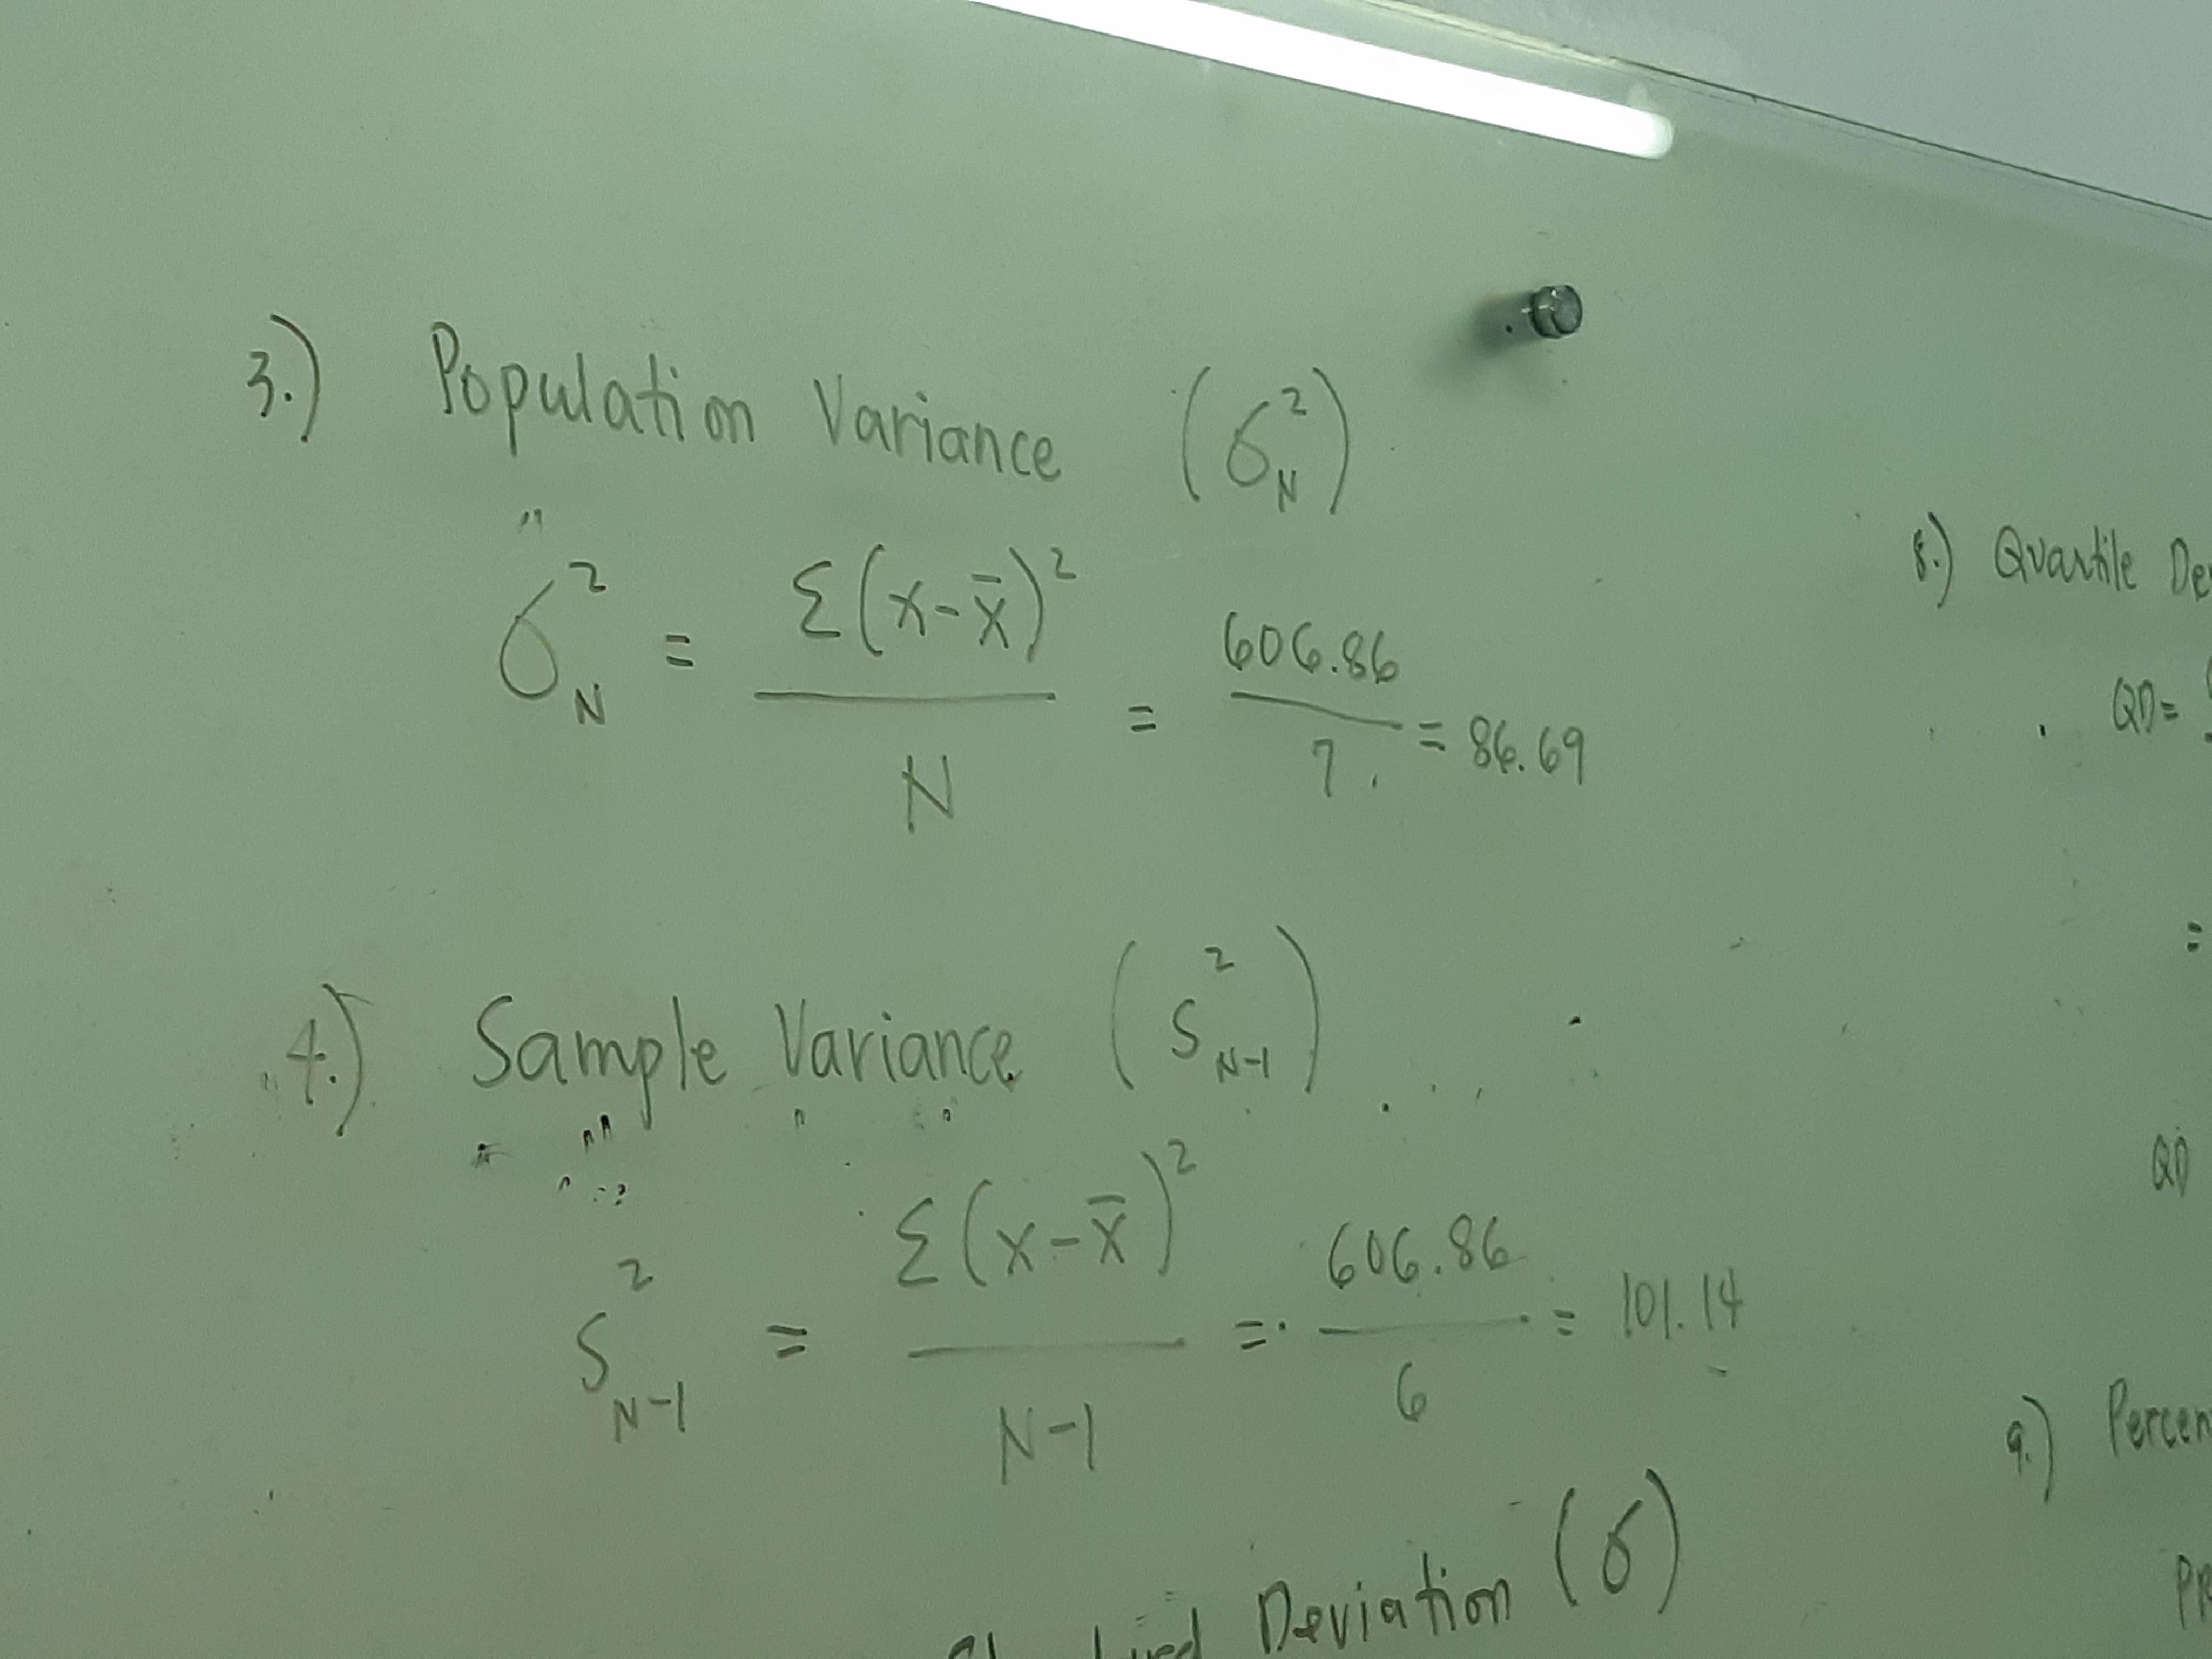 3.) Population Variance (σ²_N)
σ²_N = Σ(x-x̄)² / N = 606.86 / 7 = 86.69
4.) Sample Variance (S²_N-1)
S²_N-1 = Σ(x-x̄)² / N-1 = 606.86 / 6 = 101.14
Deviation (σ)
8.) Quartile
QD=
=
QD
9.)